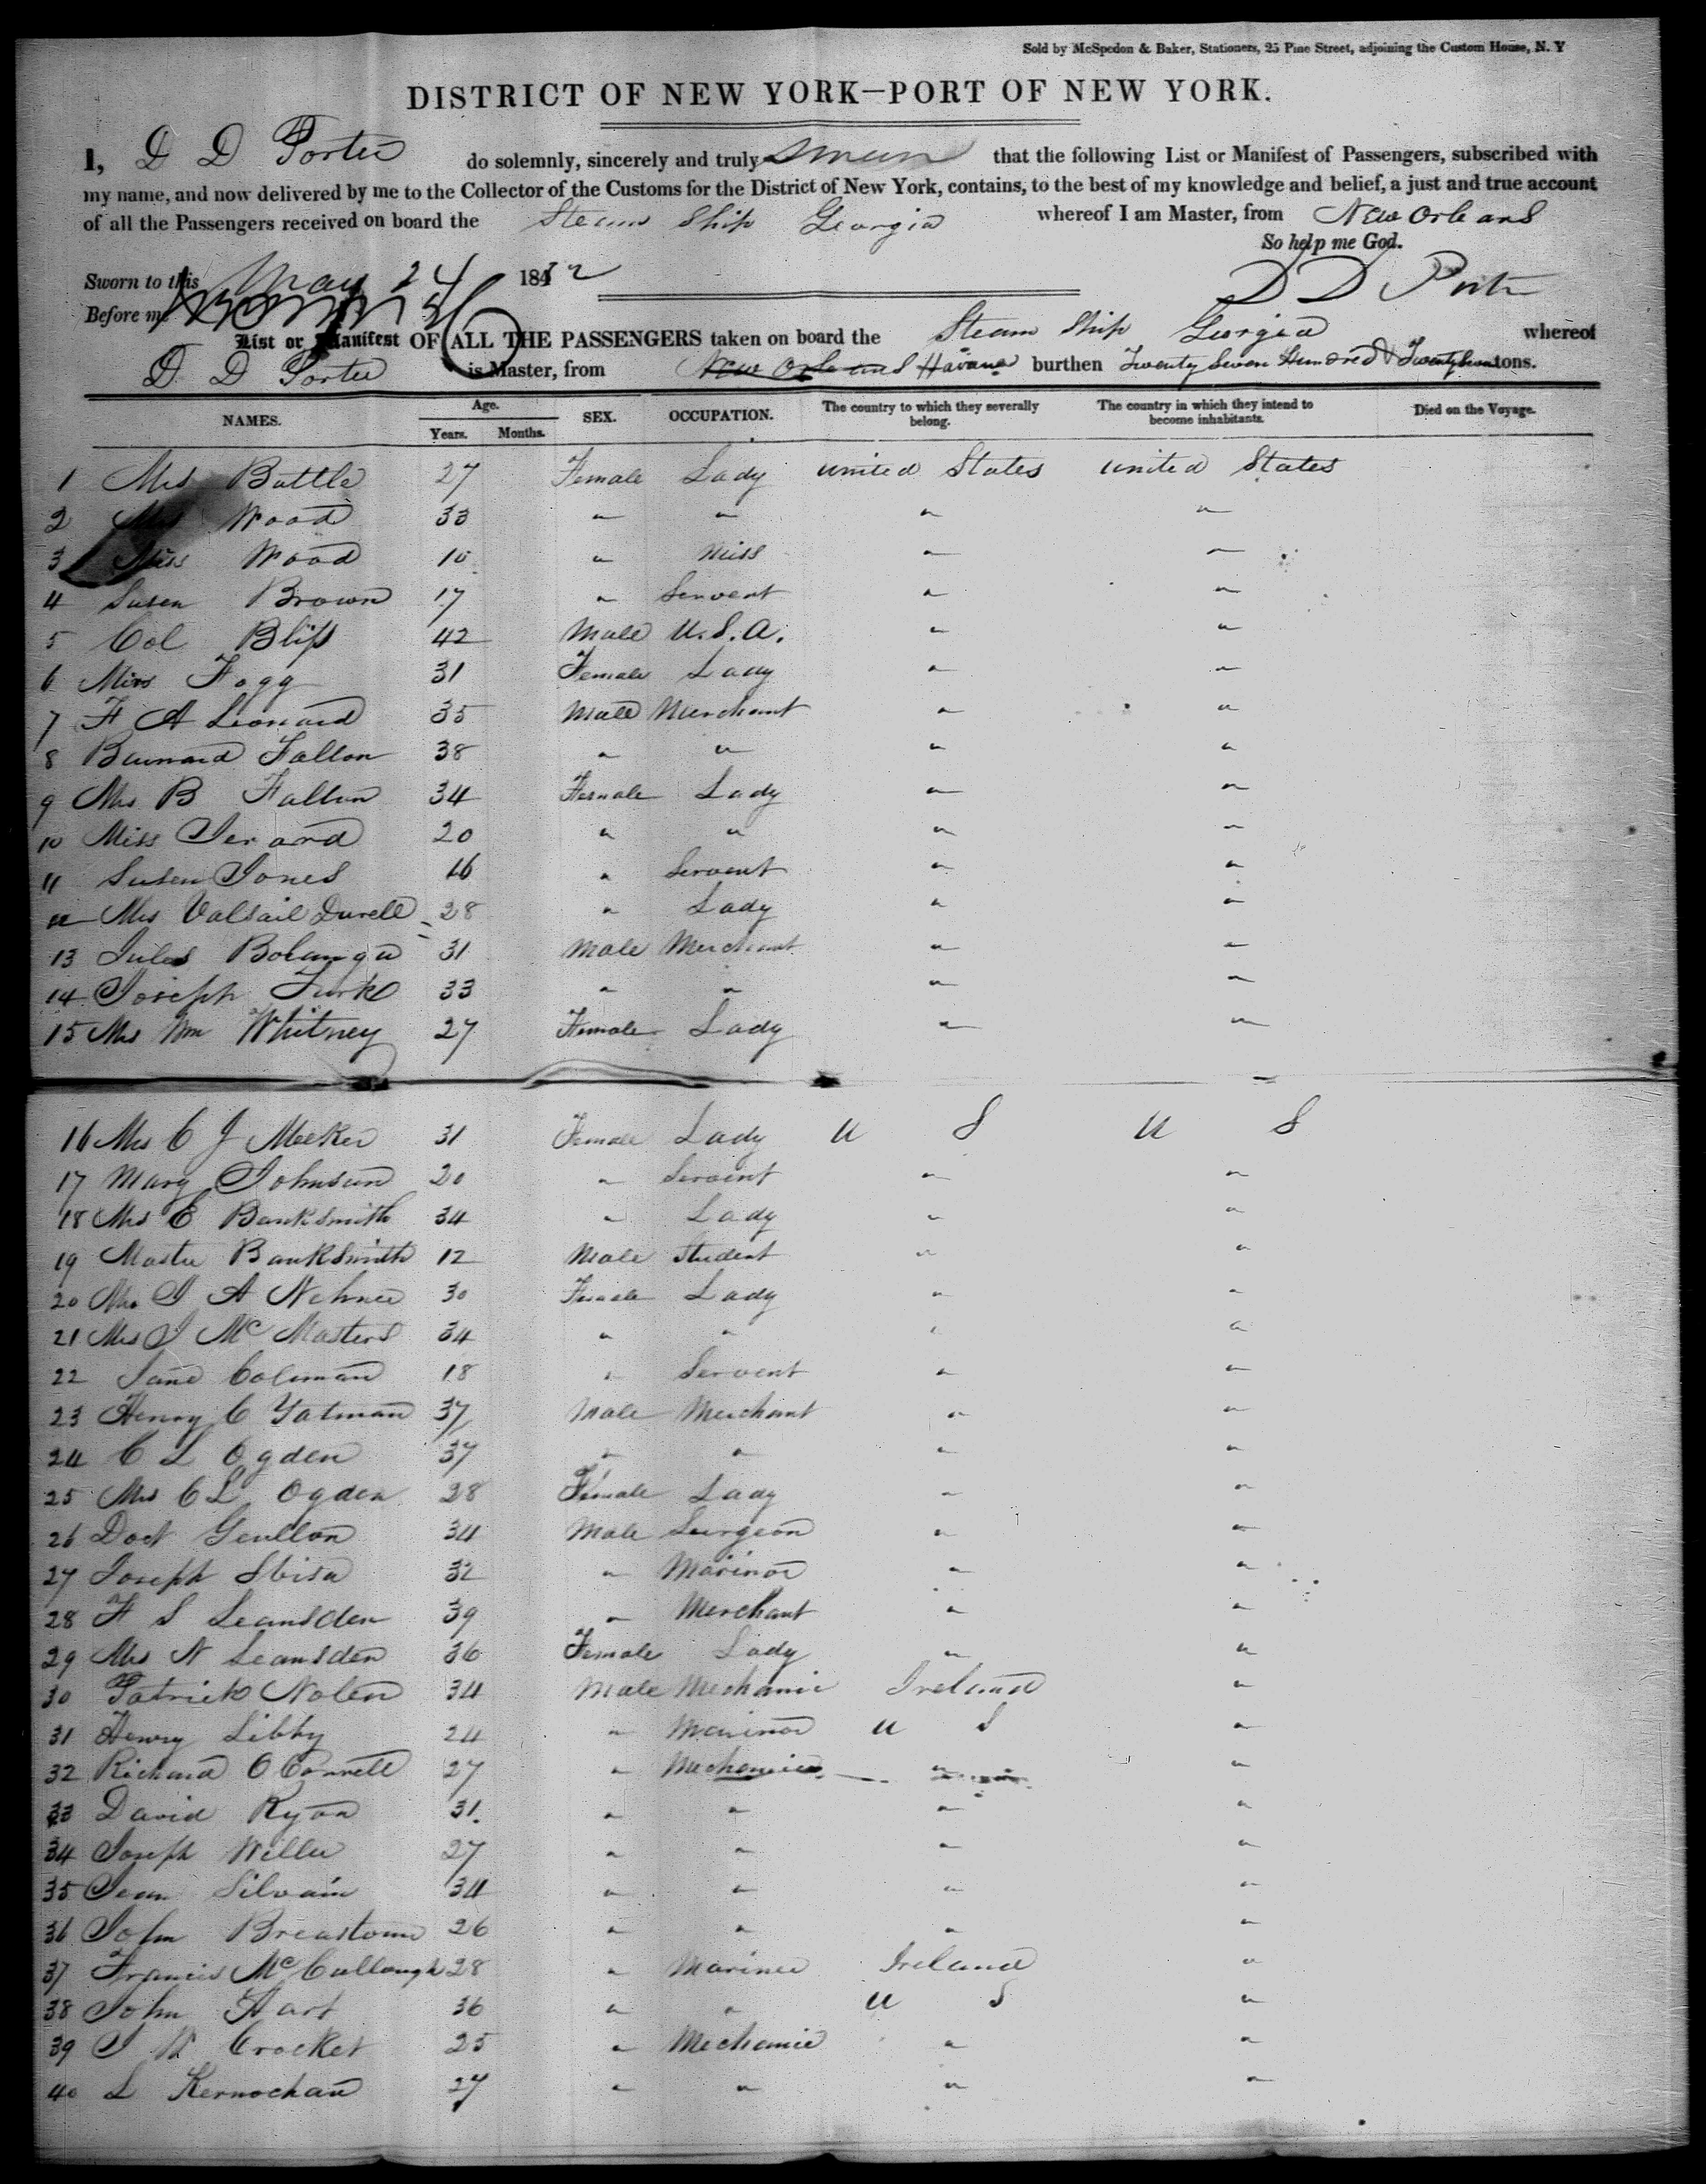 Sold by McSpedon & Baker, Stationers, 25 Pine Street, adjoining the Custom House, N. Y
DISTRICT OF NEW YORK—PORT OF NEW YORK.
I, D D Porter do solemnly, sincerely and truly swear that the following List or Manifest of Passengers, subscribed with
my name, and now delivered by me to the Collector of the Customs for the District of New York, contains, to the best of my knowledge and belief, a just and true account
of all the Passengers received on board the Steam Ship Georgia whereof I am Master, from New Orleans
So help me God.
Sworn to this May 24 1852 D D Porter
Before me
List or Manifest OF ALL THE PASSENGERS taken on board the Steam Ship Georgia whereof
D D Porter is Master, from New Orleans Havana burthen Twenty Seven Hundred & Twenty Seven tons.
NAMES. Age. Years. Months. SEX. OCCUPATION. The country to which they severally belong. The country in which they intend to become inhabitants. Died on the Voyage.
1 Mrs Battle 27 Female Lady United States United States
2 Mrs Wood 33 " " " "
3 Miss Wood 10 " Miss " "
4 Susen Brown 17 " Servent " "
5 Col Bliss 42 Male U.S.A. " "
6 Miss Fogg 31 Female Lady " "
7 F A Leonard 35 Male Merchant " "
8 Barnard Fallon 38 " " " "
9 Mrs B Fallon 34 Female Lady " "
10 Miss Jerard 20 " " " "
11 Susen Jones 16 " Servent " "
12 Mrs Valsail Durell 28 " Lady " "
13 Jules 31 Male Merchant " "
14 Joseph Turk 33 " " " "
15 Mrs Wm Whitney 27 Female Lady " "
16 Mrs C J Meeker 31 Female Lady U S U S
17 Mary Johnson 20 " Servent " "
18 Mrs E Banksmith 34 " Lady " "
19 Master Banksmith 12 Male Student " "
20 Mrs J A 30 Female Lady " "
21 Mrs J McMasters 34 " " " "
22 Jane Coleman 18 " Servent " "
23 Henry C Yatman 37 Male Merchant " "
24 C L Ogden 37 " " " "
25 Mrs C L Ogden 28 Female Lady " "
26 Doct 34 Male Surgeon " "
27 Joseph Sbisa 32 " Marinor " "
28 F S Leansden 39 " Merchant " "
29 Mrs N Leansden 36 Female Lady " "
30 Patrick Nolen 34 Male Mechanic Ireland "
31 Henry Libby 24 " Marinor U S "
32 Richard O Connell 27 " Mechanic " "
33 David Ryon 31 " " " "
34 Joseph Willer 27 " " " "
35 Jean Silvain 34 " " " "
36 John 26 " " " "
37 Francis McCullough 28 " Mariner Ireland "
38 John Hart 36 " " U S "
39 J W Crocket 25 " Mechanic " "
40 L Kernochan 27 " " " "